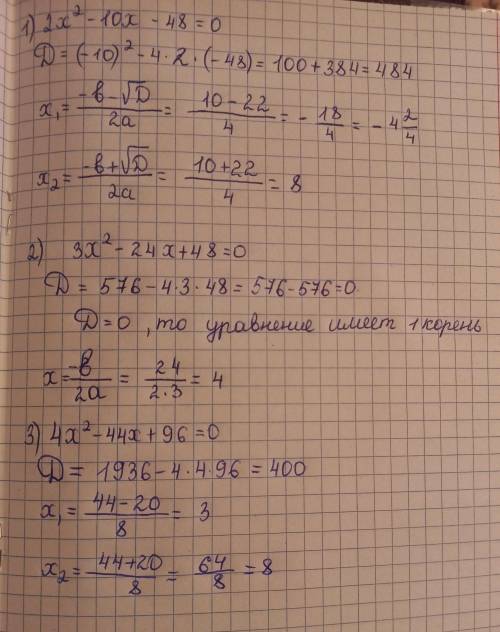 1) 2x² - 10x - 48 = 0
D = (-10)² - 4 · 2 · (-48) = 100 + 384 = 484
x₁ = (-в - √D)/2a = (10 - 22)/4 = - 18/4 = - 4 2/4
x₂ = (-в + √D)/2a = (10 + 22)/4 = 8
2) 3x² - 24x + 48 = 0
D = 576 - 4 · 3 · 48 = 576 - 576 = 0
D = 0, то уравнение имеет 1 корень
x = -в/2a = 24/2·3 = 4
3) 4x² - 44x + 96 = 0
D = 1936 - 4 · 4 · 96 = 400
x₁ = (44 - 20)/8 = 3
x₂ = (44 + 20)/8 = 64/8 = 8